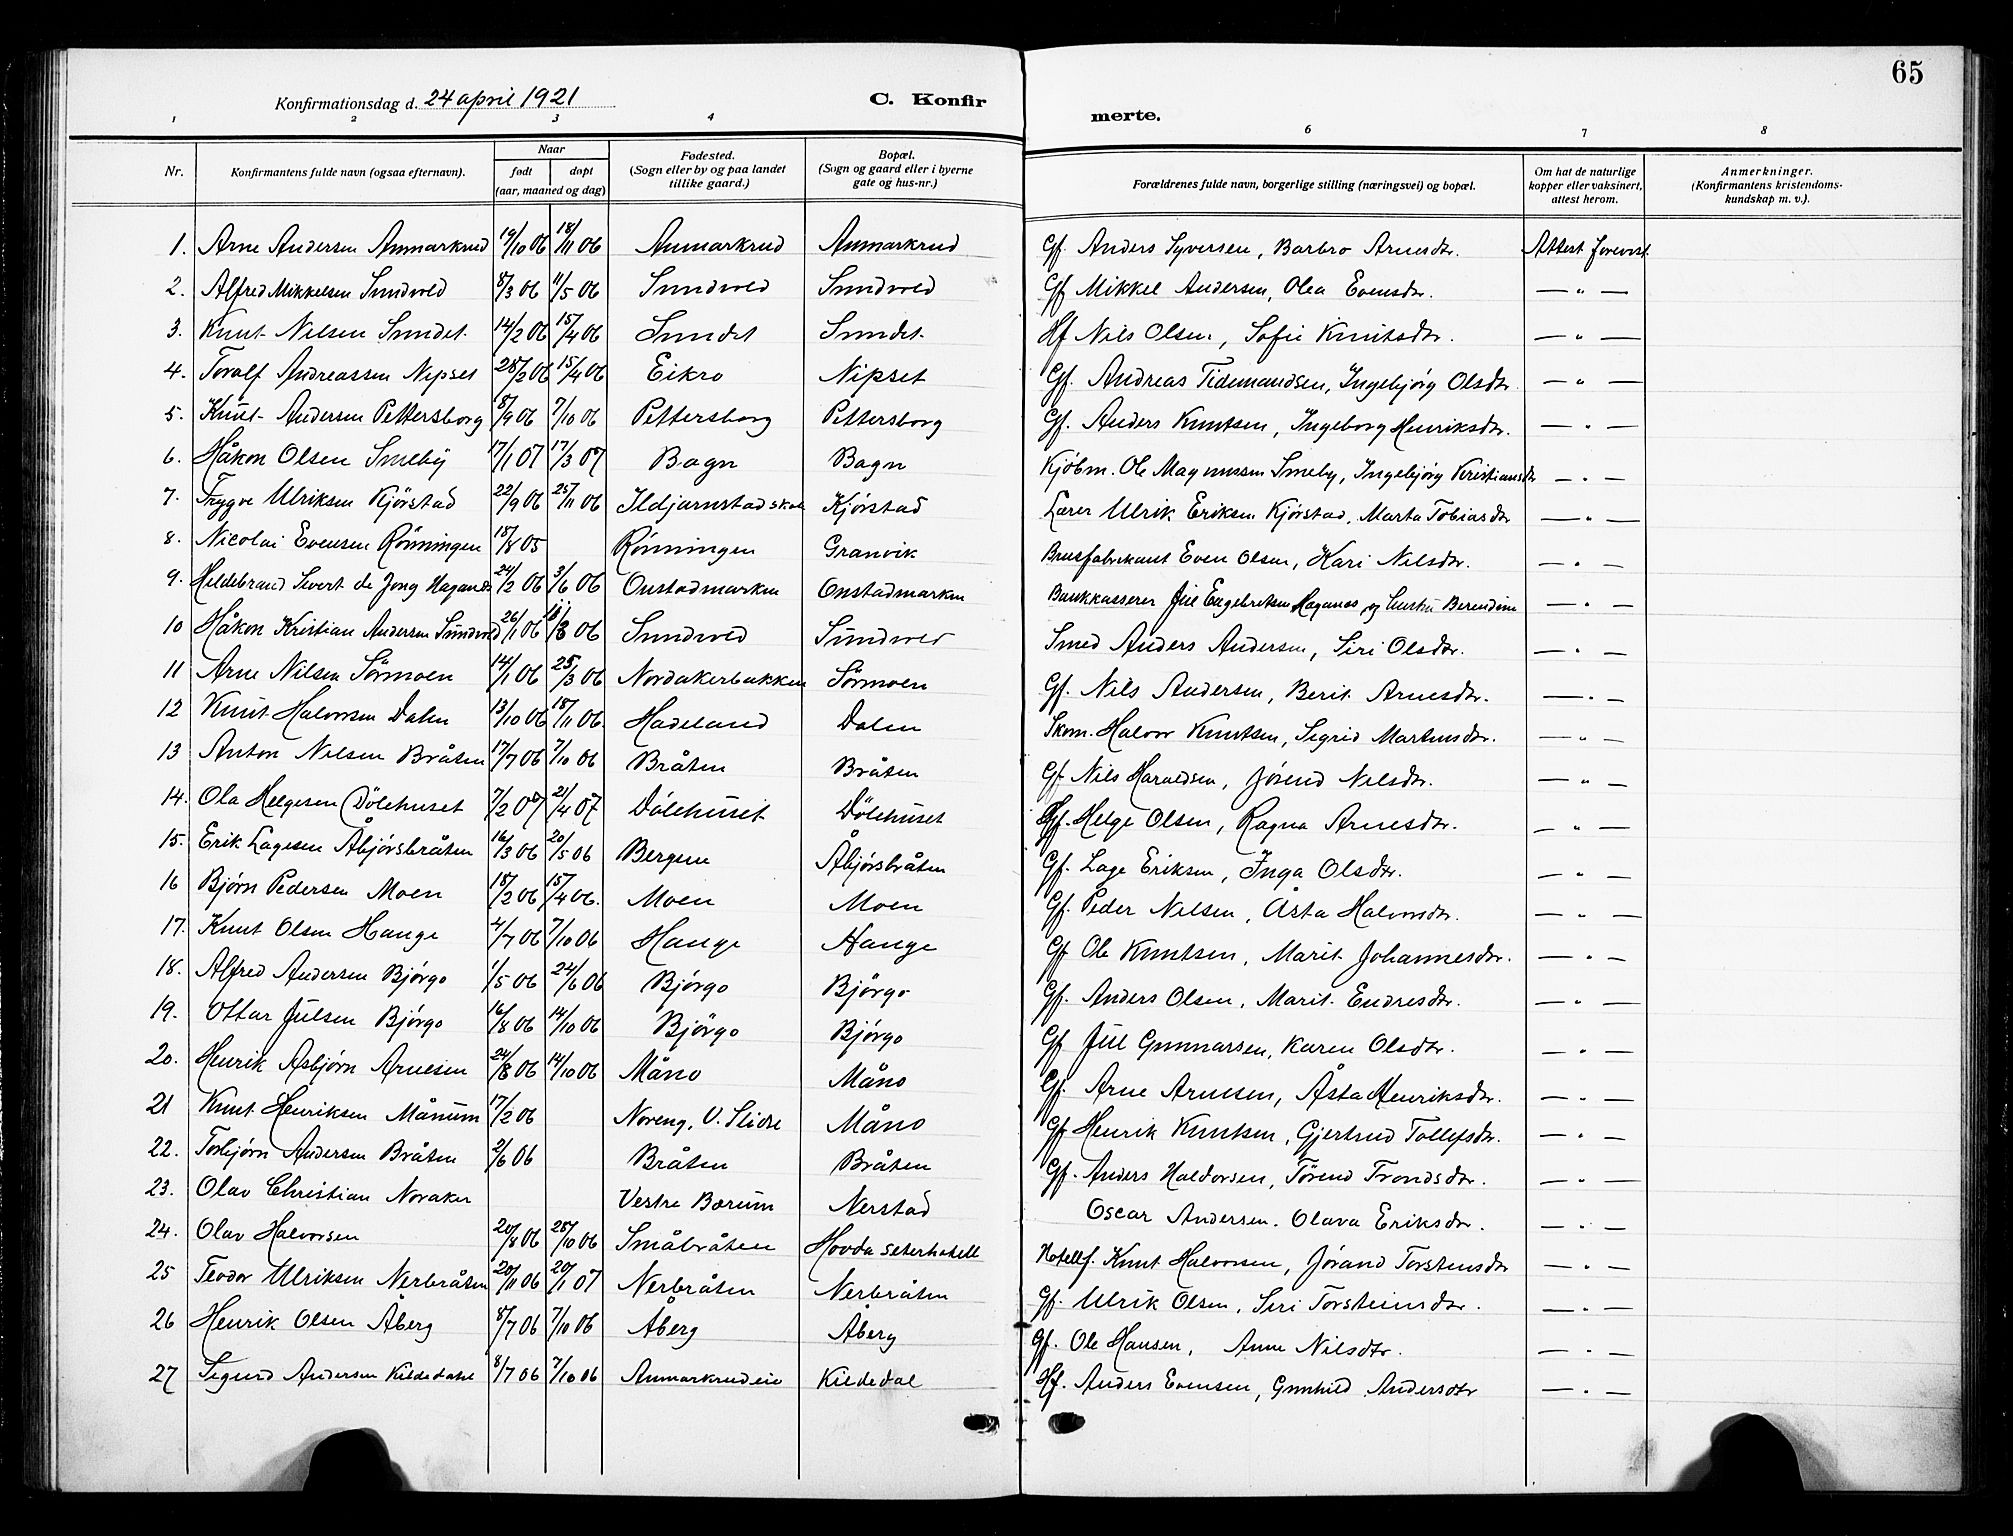 65
Konfirmationsdag d. 24 april 1921 C. Konfir merte.
1 2 3 4 6 7 8
Nr. Konfirmantens fulde navn (ogsaa efternavn). Naar født døpt (aar, maaned og dag) Fødested. (Sogn eller by og paa landet tillike gaard.) Bopæl. (Sogn og gaard eller i byerne gate og hus-nr.) Forældrenes fulde navn, borgerlige stilling (næringsvei) og bopæl. Om hat de naturlige kopper eller vaksinert, attest herom. Anmerkninger. (Konfirmantens kristendoms- kundskap m. v.).
1. Arne Andersen Anmarkrud 19/10 06 18/11 06 Anmarkrud Anmarkrud Gf. Anders Syversen, Barbro Arnesdtr. Attest forevist
2. Alfred Mikkelsen Sundvold 8/3 06 11/5 06 Sundvold Sundvold Gf Mikkel Andersen, Olea Evensdtr. — " —
3. Knut Nilsen Sundet 14/2 06 15/4 06 Sundet Sundet Hf Nils Olsen, Sofie Knutsdtr. — " —
4. Toralf Andreassen Nipset 28/2 06 15/4 06 Eikro Nipset Gf. Andreas Tidemandsen, Ingebjörg Olsdtr — " —
5. Knut Andersen Pettersborg 8/9 06 7/10 06 Pettersborg Pettersborg Gf. Anders Knutsen, Ingeborg Henriksdtr. — " —
6. Håkon Olsen Smeby 17/1 07 17/3 07 Bagn Bagn Kjöbm. Ole Magnussen Smeby, Ingebjörg Kristiansdtr — " —
7. Trygve Ulriksen Kjörstad 22/9 06 25/11 06 Ildjarnstad skole Kjörstad Lærer Ulrik Eriksen Kjörstad, Marta Tobiasdtr — " —
8. Nicolai Evensen Rönningen 18/8 05 Rönningen Granvik Brusfabrikant Even Olsen, Kari Nilsdtr. — " —
9. Hildebrand Sivert de Jong Haganes 24/2 06 3/6 06 Onstadmarken Onstadmarken Bankkasserer Jul Engebretsen Haganes og hustru Berendine — " —
10 Håkon Kristian Andersen Sundvold 26/1 06 18/3 06 Sundvold Sundvold Smed Anders Andersen, Siri Olsdtr. — " —
11 Arne Nilsen Sörmoen 14/1 06 25/3 06 Nordakerbakken Sörmoen Gf. Nils Andersen, Berit Arnesdtr. — " —
12 Knut Halvorsen Dalen 13/10 06 18/11 06. Hadeland Dalen Skom. Halvor Knutsen, Sigrid Martinsdtr. — " —
13 Anton Nilsen Bråten 17/7 06 7/10 06 Bråten Bråten Gf Nils Haraldsen, Jörend Nilsdtr. — " —
14. Ola Helgesen Dölehuset 7/2 07 21/4 07 Dölehuset Dölehuset Gf. Helge Olsen, Ragna Arnesdtr. — " —
15. Erik Lagesen Åbjörsbråten 16/3 06 20/5 06 Bergene Åbjörsbråten Gf. Lage Eriksen, Inga Olsdtr. — " —
16 Björn Pedersen Moen 18/2 06 15/4 06. Moen Moen Gf. Peder Nilsen, Åsta Halvorsdtr. — " —
17. Knut Olsen Hauge 4/7 06 7/10 06 Hauge Hauge Gf Ole Knutsen, Marit Johannesdtr. — " —
18. Alfred Andersen Björgo 1/5 06 24/6 06 Björgo Björgo Gf. Anders Olsen, Marit Endresdtr. — " —
19. Ottar Julsen Björgo 16/8 06 14/10 06 Björgo Björgo Gf Jul Gunnarsen, Karen Olsdtr. — " —
20. Henrik Asbjörn Arnesen 24/8 06 14/10 06 Måno Måno Gf. Arne Arnesen, Åsta Henriksdtr. — " —
21 Knut Henriksen Månum 17/2 06 Noreng, V. Slidre Måno Gf Henrik Knutsen, Gjertrud Tollefsdtr. — " —
22. Torbjörn Andersen Bråten 2/6 06 Bråten Bråten Gf. Anders Haldorsen, Törend Trondsdtr. — " —
23. Olav Christian Noraker Vestre Bærum Nerstad Oscar Andersen. Olava Eriksdtr. — " —
24. Olav Halvorsen 20/8 06 28/10 06 Småbråten Hovda seterhotell Hotellf. Knut Halvorsen, Jörand Torstensdtr — " —
25 Teodor Ulriksen Nerbråten 20/11 06 20/1 07 Nerbråten Nerbråten Gf. Ulrik Olsen, Siri Torsteinsdtr. — " —
26 Henrik Olsen Åberg 8/7 06 7/10 06 Åberg Åberg Gf. Ole Hansen, Anne Nilsdtr. — " —
27 Sigurd Andersen Kildedahl 8/7 06 7/10 06 Anmarkrudeie Kildedal Hf. Anders Evensen, Gunhild Andersdtr — " —